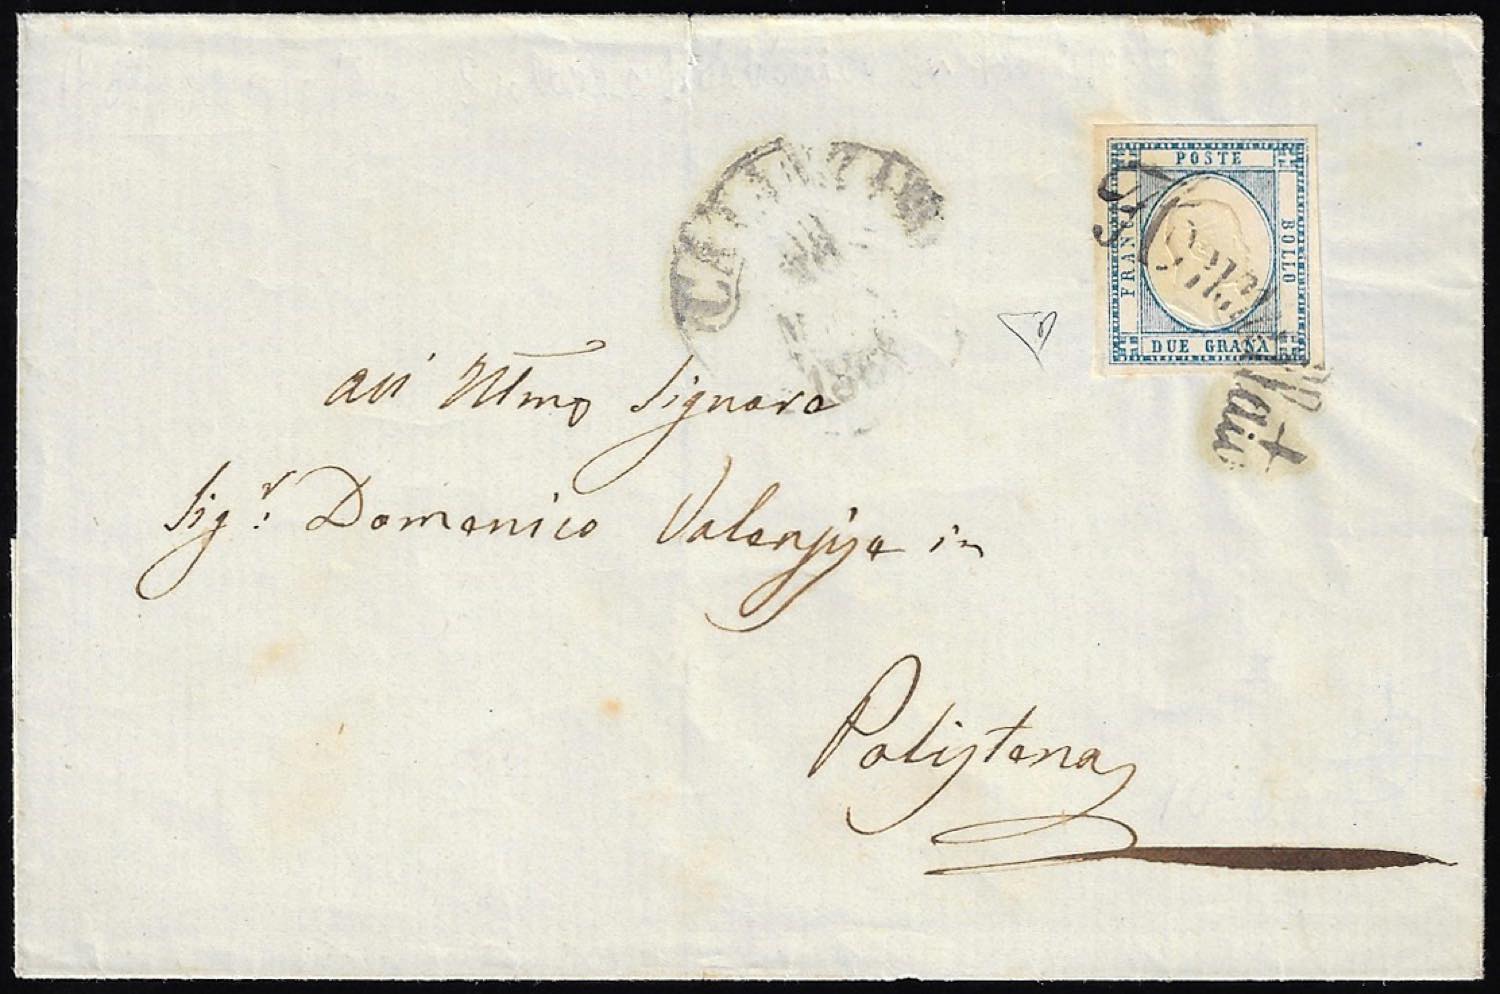 POSTE
FRANCO
BOLLO
DUE GRANA
CATANZARO
All Illmo Signore
Sigr. Domenico Valensise in
Polistena